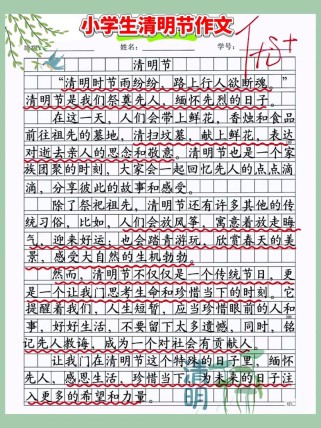 小学生清明节作文
姓名：
学号：
清明节
“清明时节雨纷纷，路上行人欲断魂。”
清明节是我们祭奠先人，缅怀先烈的日子。
在这一天，人们会带上鲜花，香烛和食品
前往祖先的墓地，清扫坟墓，献上鲜花，表达
对逝去亲人的思念和敬意。清明节也是一个家
族团聚的时刻，大家会一起回忆先人的点点滴
滴，分享彼此的故事和感受。
除了祭祀祖先，清明节还有许多其他的传
统习俗，比如，人们会放风筝，寓意着放走晦
气，迎来好运；也会踏青游玩，欣赏春天的美
景，感受大自然的生机勃勃。
然而，清明节不仅仅是一个传统节日，更
是一个让我们思考生命和珍惜当下的时刻。它
提醒着我们，人生短暂，应当珍惜眼前的人和
事，好好生活，不要留下太多遗憾，同时，铭
记先人教诲，成为一个对社会有贡献人。
让我们在清明节这个特殊的日子里，缅怀
先人，感恩生活，珍惜当下，为未来的日子注
入更多的希望和力量。
清明